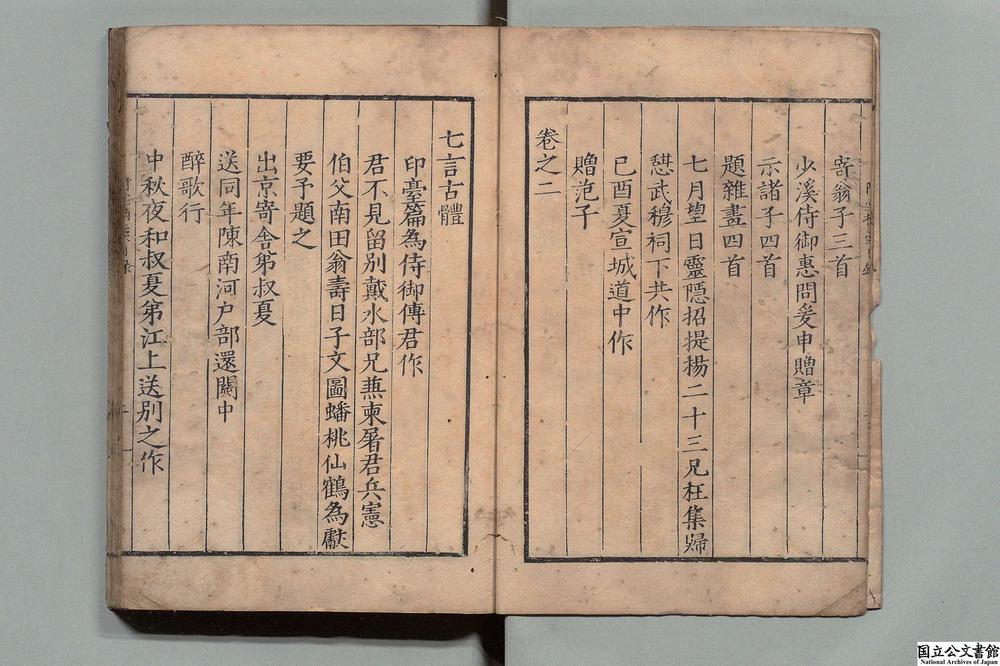 寄翁子三首
少溪侍御惠問爰申贈章
示諸子四首
題雜畫四首
七月望日靈隱招提楊二十三兄枉集歸
憇武穆祠下共作
己酉夏宣城道中作
贈范子
卷之二
七言古體
印臺篇為侍御傅君作
君不見留別戴水部兄兼柬屠君兵憲
伯父南田翁壽日子文圖蟠桃仙鶴為獻
要予題之
出京寄舍弟叔夏
送同年陳南河户部還關中
醉歌行
中秋夜和叔夏弟江上送別之作
国立公文書館
National Archives of Japan